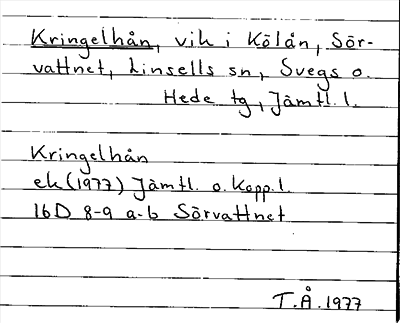 Kringelhån, vik i Kölån, Sör-
vattnet, Linsells sn, Svegs o.
Hede tg, Jämtl. l.
Kringelhån
ek (1977) Jämtl. o. Kopp. l.
16D 8-9 a-b Sörvattnet
T.Å. 1977